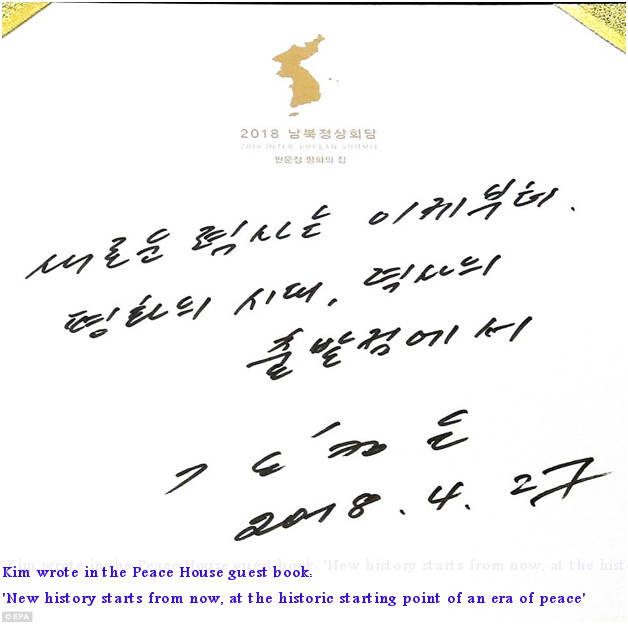 2018 남북정상회담
2018 INTER-KOREAN SUMMIT
판문점 평화의 집
새로운 력사는 이제부터.
평화의 시대, 력사의
출발점에서
김정은
2018. 4. 27
Kim wrote in the Peace House guest book: 'New history starts from now, at the hist
Kim wrote in the Peace House guest book:
'New history starts from now, at the historic starting point of an era of peace'
© EPA